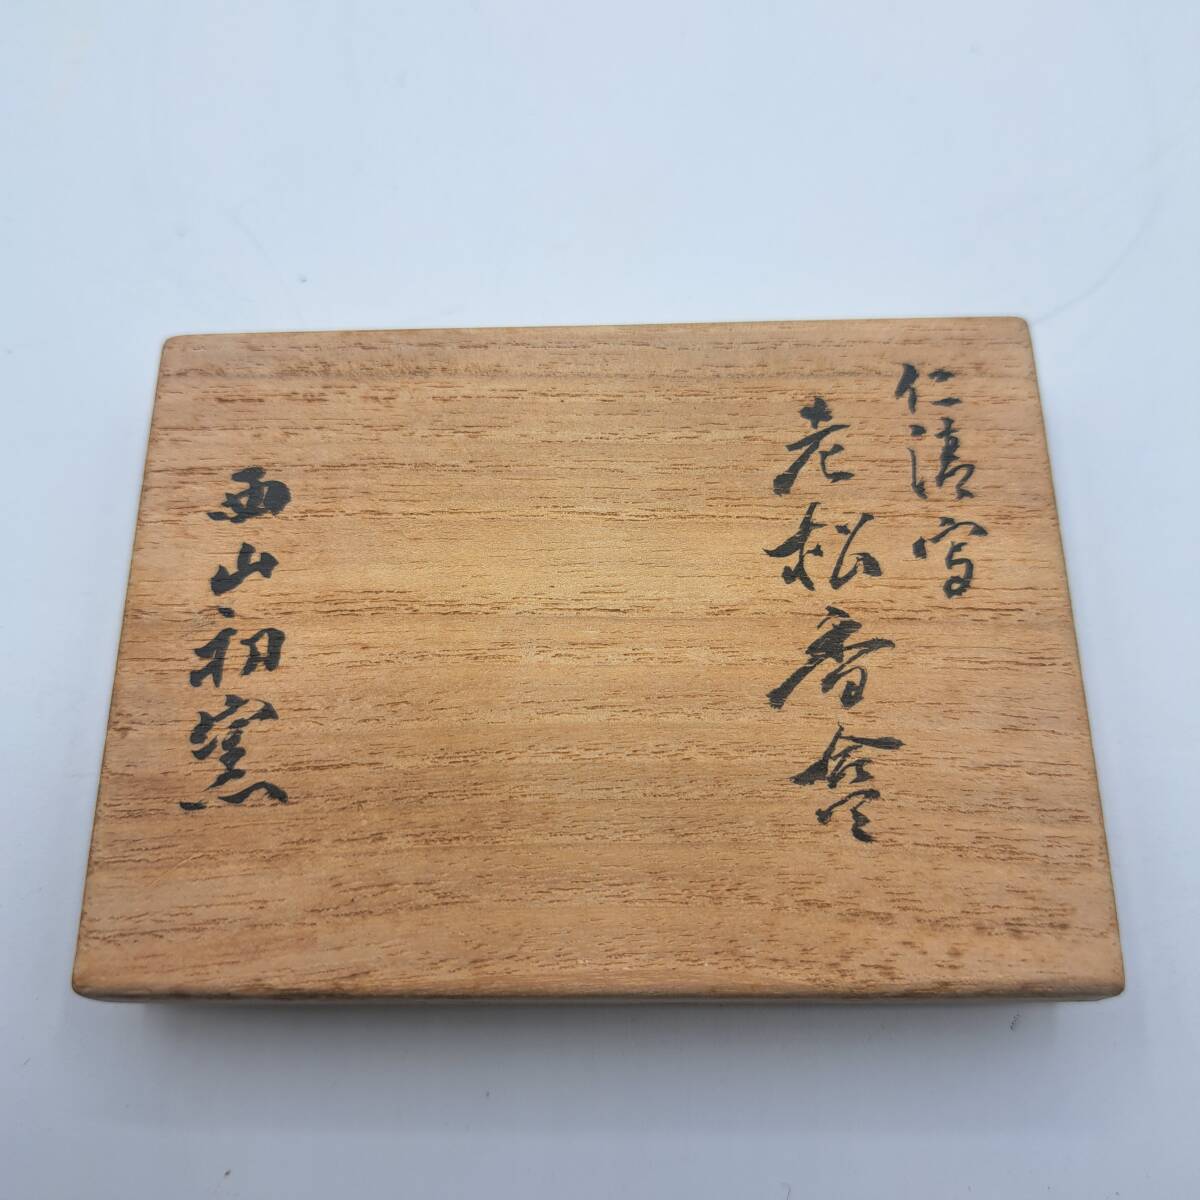 仁清写
老松香合
西山初窯